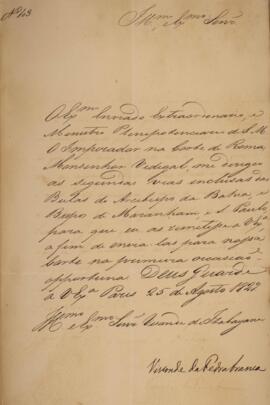 Nº 13
Illmo. e Exmo. Senr.
O Exmo. Enviado Extraordinario, e
Ministro Plenipotenciario de S. M.
O Imperador na Corte de Roma
Monsenhor Vidigal, me dirigio
as segundas Vias inclusas das
Bullas do Arcebispo da Bahia, e
Bispo do Maranham, e S. Paulo,
para que eu as remetta a V. Exa.
a fim de envia las para nossa
Corte na primeira occasião
opportuna Deus Guarde
a V. Exa. Paris 25 de Agosto 1827
Illmo.
e Exmo. Senr. Visconde de Itabayana
Visconde da Pedra branca